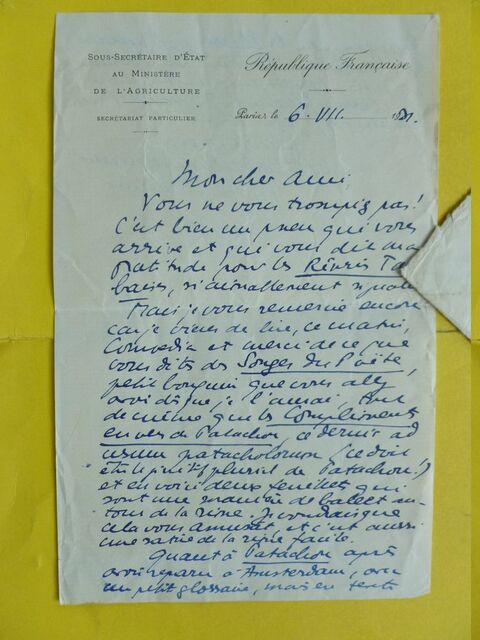 SOUS-SECRÉTAIRE D'ÉTAT
AU MINISTÈRE
DE L'AGRICULTURE
SECRÉTARIAT PARTICULIER
République Française
Paris, le 6. VII. 1921.
Mon cher Ami,
Vous ne vous trompiez pas!
C'est bien un pneu qui vous
arrive et qui vous dit ma
gratitude pour les
si aimablement
Mais je vous remercie encore
car je viens de lire, ce matin,
Comoedia et merci de ce que
vous dites des Songes du Poète,
petit bouquin que vous allez
avoir dès que je l'aurai. Tout
de même que les Compliments
en vers de Patachon, ce dernier ad
usum patachonorum (ce doit
être le génitif pluriel de Patachon!)
et en voici deux feuillets qui
sont une manière de ballet au-
tour de la rime. Je voudrais que
cela vous amusât et c'est aussi
une satire de la rime facile.
Quant à Patachon après
avoir reparu à Amsterdam, avec
un petit glossaire, mais en